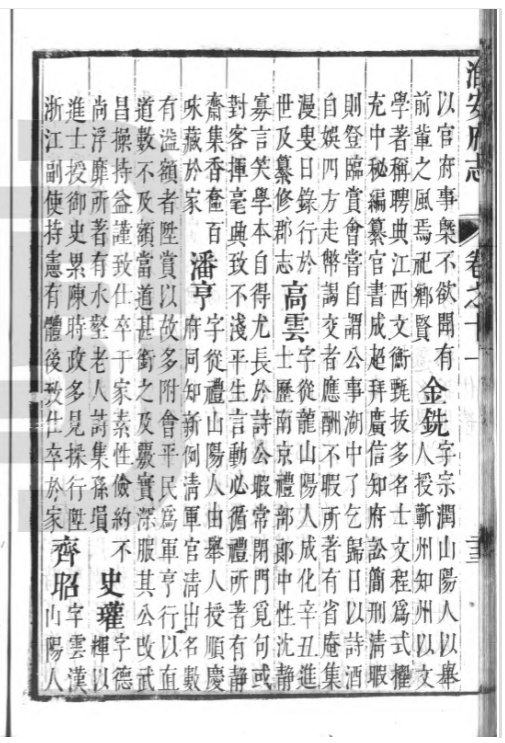 淮安府志 卷之十一
以官府事槩不欲聞有
前輩之風焉祀鄉賢
金銑
字宗潤山陽人以舉
人授蘄州知州以文
學著稱聘典江西文衡甄拔多名士文程為式擢
充中秘編纂官書成超拜廣信知府訟簡刑清暇
則登臨賞會嘗自謂公事湖中了乞歸日以詩酒
自娛四方走幣謁交者應酬不暇所著有省庵集
漫叟日錄行於
世及纂修郡志
高雲
字從龍山陽人成化辛丑進
士歷南京禮部郎中性沈靜
寡言笑學本自得尤長於詩公暇常閉門覓句或
對客揮毫典致不淺平生言動必循禮所著有靜
齋集香奩百
咏藏於家
潘亨
字從禮山陽人由舉人授順慶
府同知新例清軍官清出名數
有溢額者陞賞以故多附會平民為軍亨行以直
道數不及額當道甚銜之及覈實深服其公改武
昌操持益謹致仕卒于家素性儉約不
尚浮靡所著有水壑老人詩集孫塤
史瓘
字德
輝以
進士授御史累陳時政多見採行陞
浙江副使持憲有體後致仕卒於家
齊昭
字雲漢
山陽人